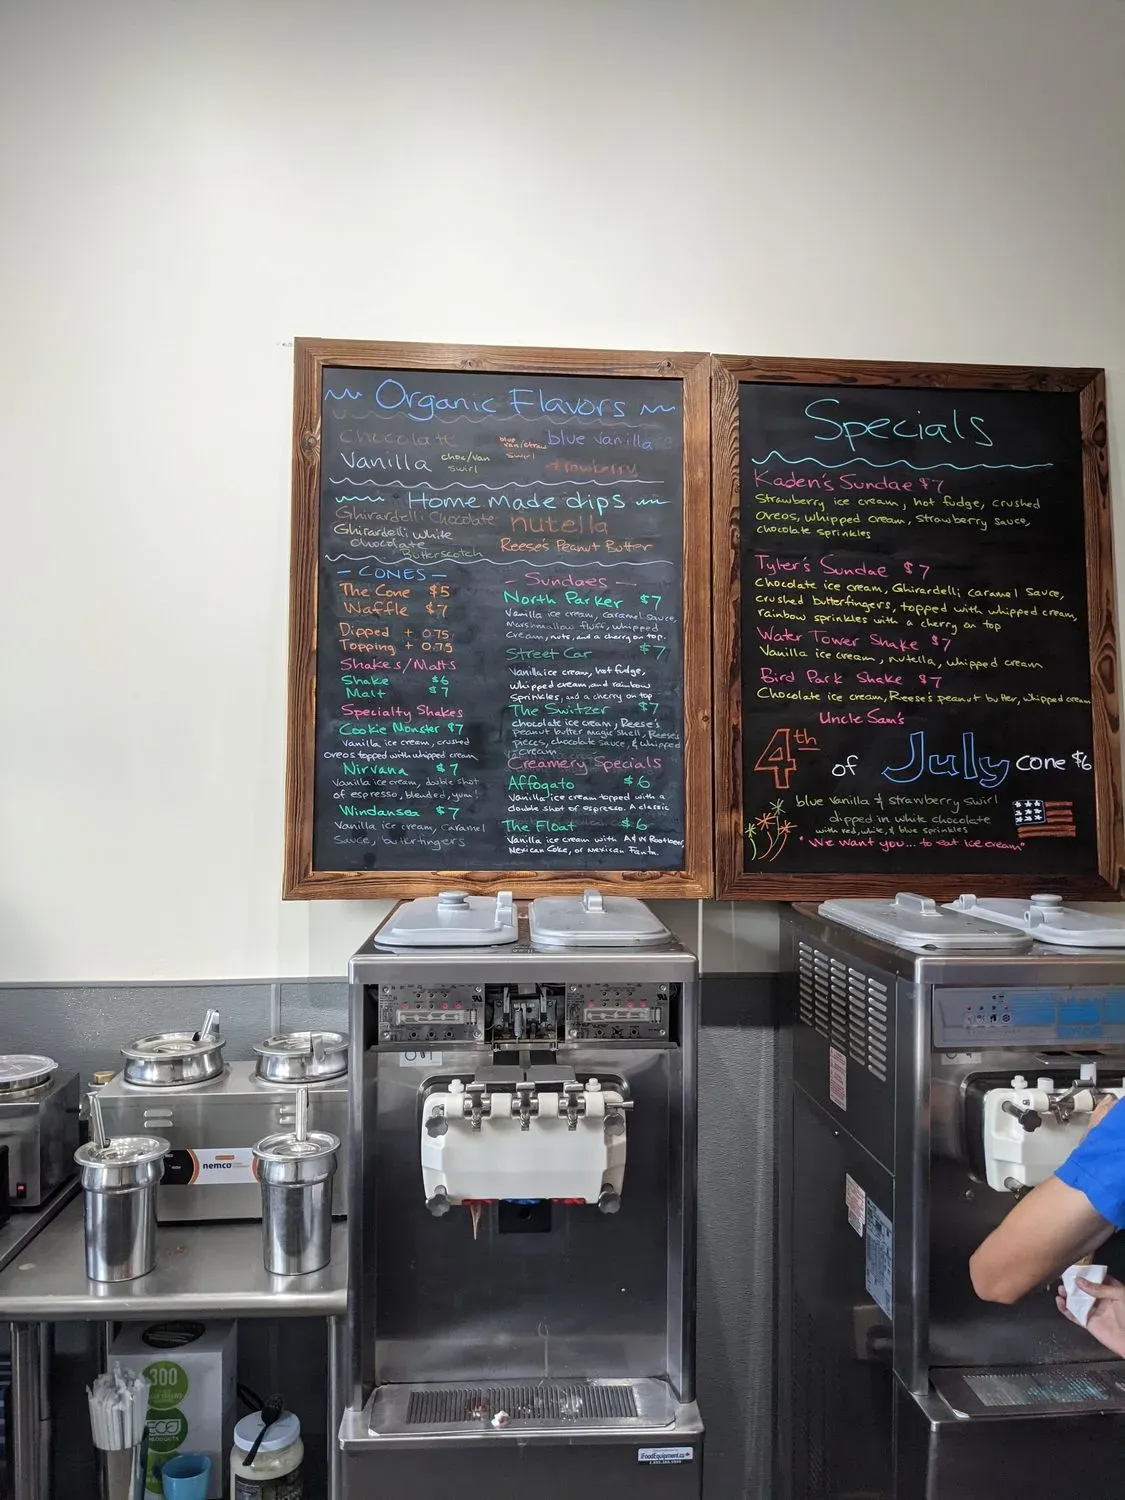 Organic Flavors
chocolate
blue van/straw swirl
blue vanilla
Vanilla
choc/van swirl
strawberry
Home Made dips
Ghirardelli Chocolate
nutella
Ghirardelli White
chocolate
Butterscotch
Reese's Peanut Butter
- CONES -
The Cone $5
Waffle $7
Dipped + 0.75
Topping + 0.75
Shakes/Malts
Shake $6
Malt $7
Specialty Shakes
Cookie Monster $7
Vanilla ice cream, crushed
oreos topped with whipped cream
Nirvana $7
Vanilla ice cream, double shot
of espresso, blended, yum!
Windansea $7
Vanilla ice cream, caramel
sauce, butterfingers
- Sundaes -
North Parker $7
Vanilla ice cream, caramel sauce,
Marshmallow fluff, whipped
cream, nuts, and a cherry on top.
Street Car $7
Vanilla ice cream, hot fudge,
whipped cream, and rainbow
sprinkles, and a cherry on top
The Switzer $7
chocolate ice cream, Reese's
peanut butter magic shell, Reese's
pieces, chocolate sauce, & whipped
cream
Creamery Specials
Affogato $6
Vanilla ice cream topped with a
double shot of espresso. A classic
The Float $6
Vanilla ice cream with A&W Rootbeer,
Mexican Coke, or Mexican Fanta.
Specials
Kaden's Sundae $7
Strawberry ice cream, hot fudge, crushed
oreos, whipped cream, strawberry sauce,
chocolate sprinkles
Tyler's Sundae $7
Chocolate ice cream, Ghirardelli caramel sauce,
crushed butterfingers, topped with whipped cream,
rainbow sprinkles with a cherry on top
Water Tower Shake $7
Vanilla ice cream, nutella, whipped cream
Bird Park Shake $7
Chocolate ice cream, Reese's peanut butter, whipped cream
Uncle Sam's
4th of July cone $6
blue vanilla & strawberry swirl
dipped in white chocolate
with red, white, & blue sprinkles
"We want you... to eat ice cream"
nemco
300
eco
PRODUCTS
iFoodEquipment.ca